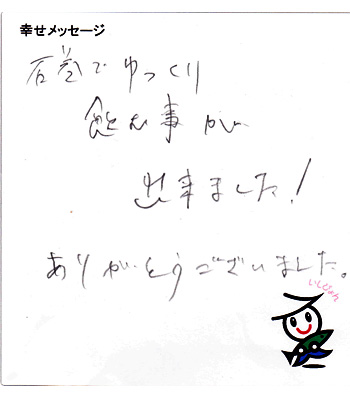 幸せメッセージ
石巻でゆっくり
飲む事が
出来ました!
ありがとうございました。
いしぴょん